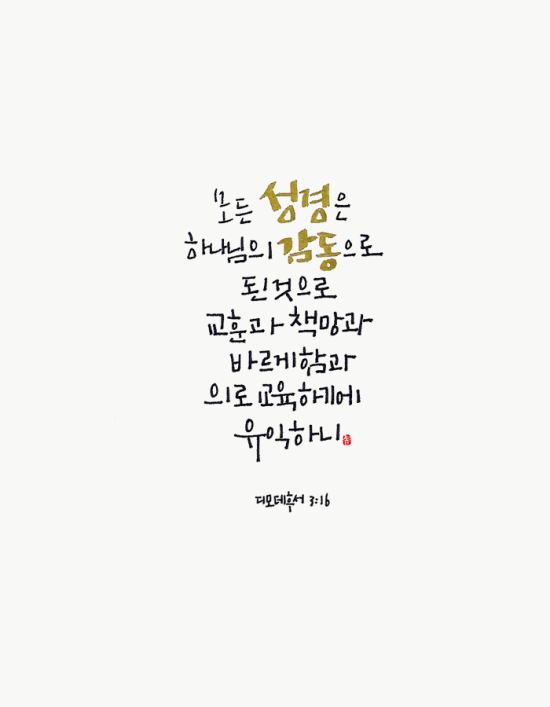 모든 성경은
하나님의 감동으로
된것으로
교훈과 책망과
바르게함과
의로 교육하기에
유익하니
디모데후서 3:16